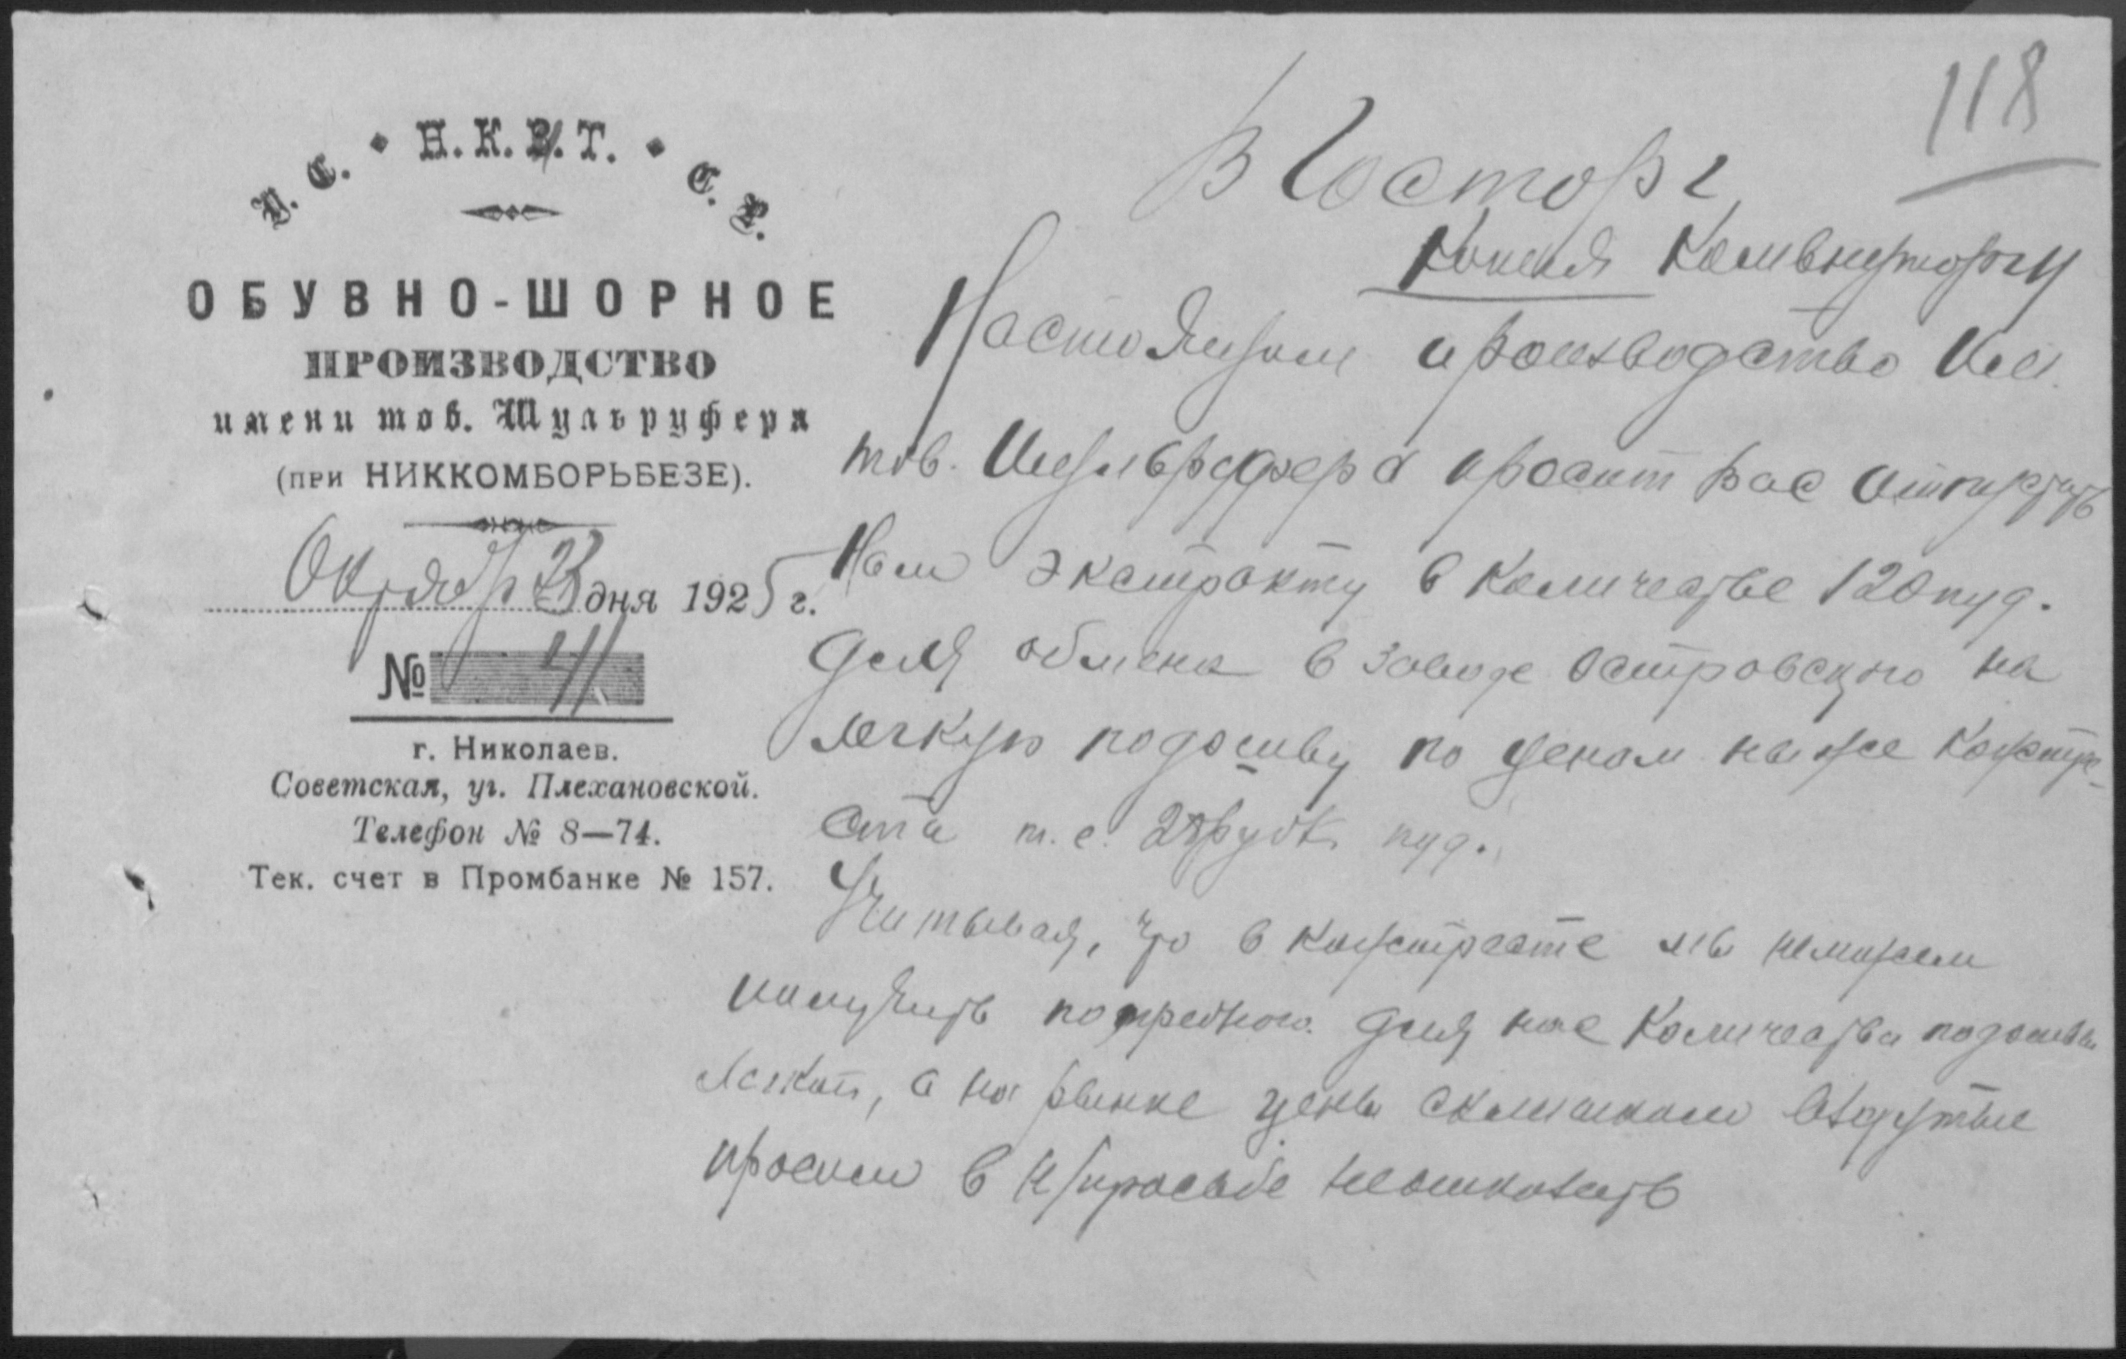 118
У. С. • Н. К. В. Т. • С. Р.
ОБУВНО-ШОРНОЕ
ПРОИЗВОДСТВО
имени тов. Шульруфера
(при НИККОМБОРЬБЕЗЕ).
Октября 23 дня 1925 г.
№ 41
г. Николаев.
Советская, уг. Плехановской.
Телефон № 8—74.
Тек. счет в Промбанке № 157.
В Госторг
Копия Комвнуторгу
Настоящим производство им.
тов. Шульруфера просит Вас отпустить
Нам экстракту в количестве 120 пуд.
для обмена в заводе Островского на
легкую подошву по ценам ниже кожтре-
ста т. е. руб пуд.
Учитывая, что в кожтресте мы неможем
получить потребного для нас количества подошвы
легкой, а на рынке цены слишком вздутые
просим в н/просьбе неотказать